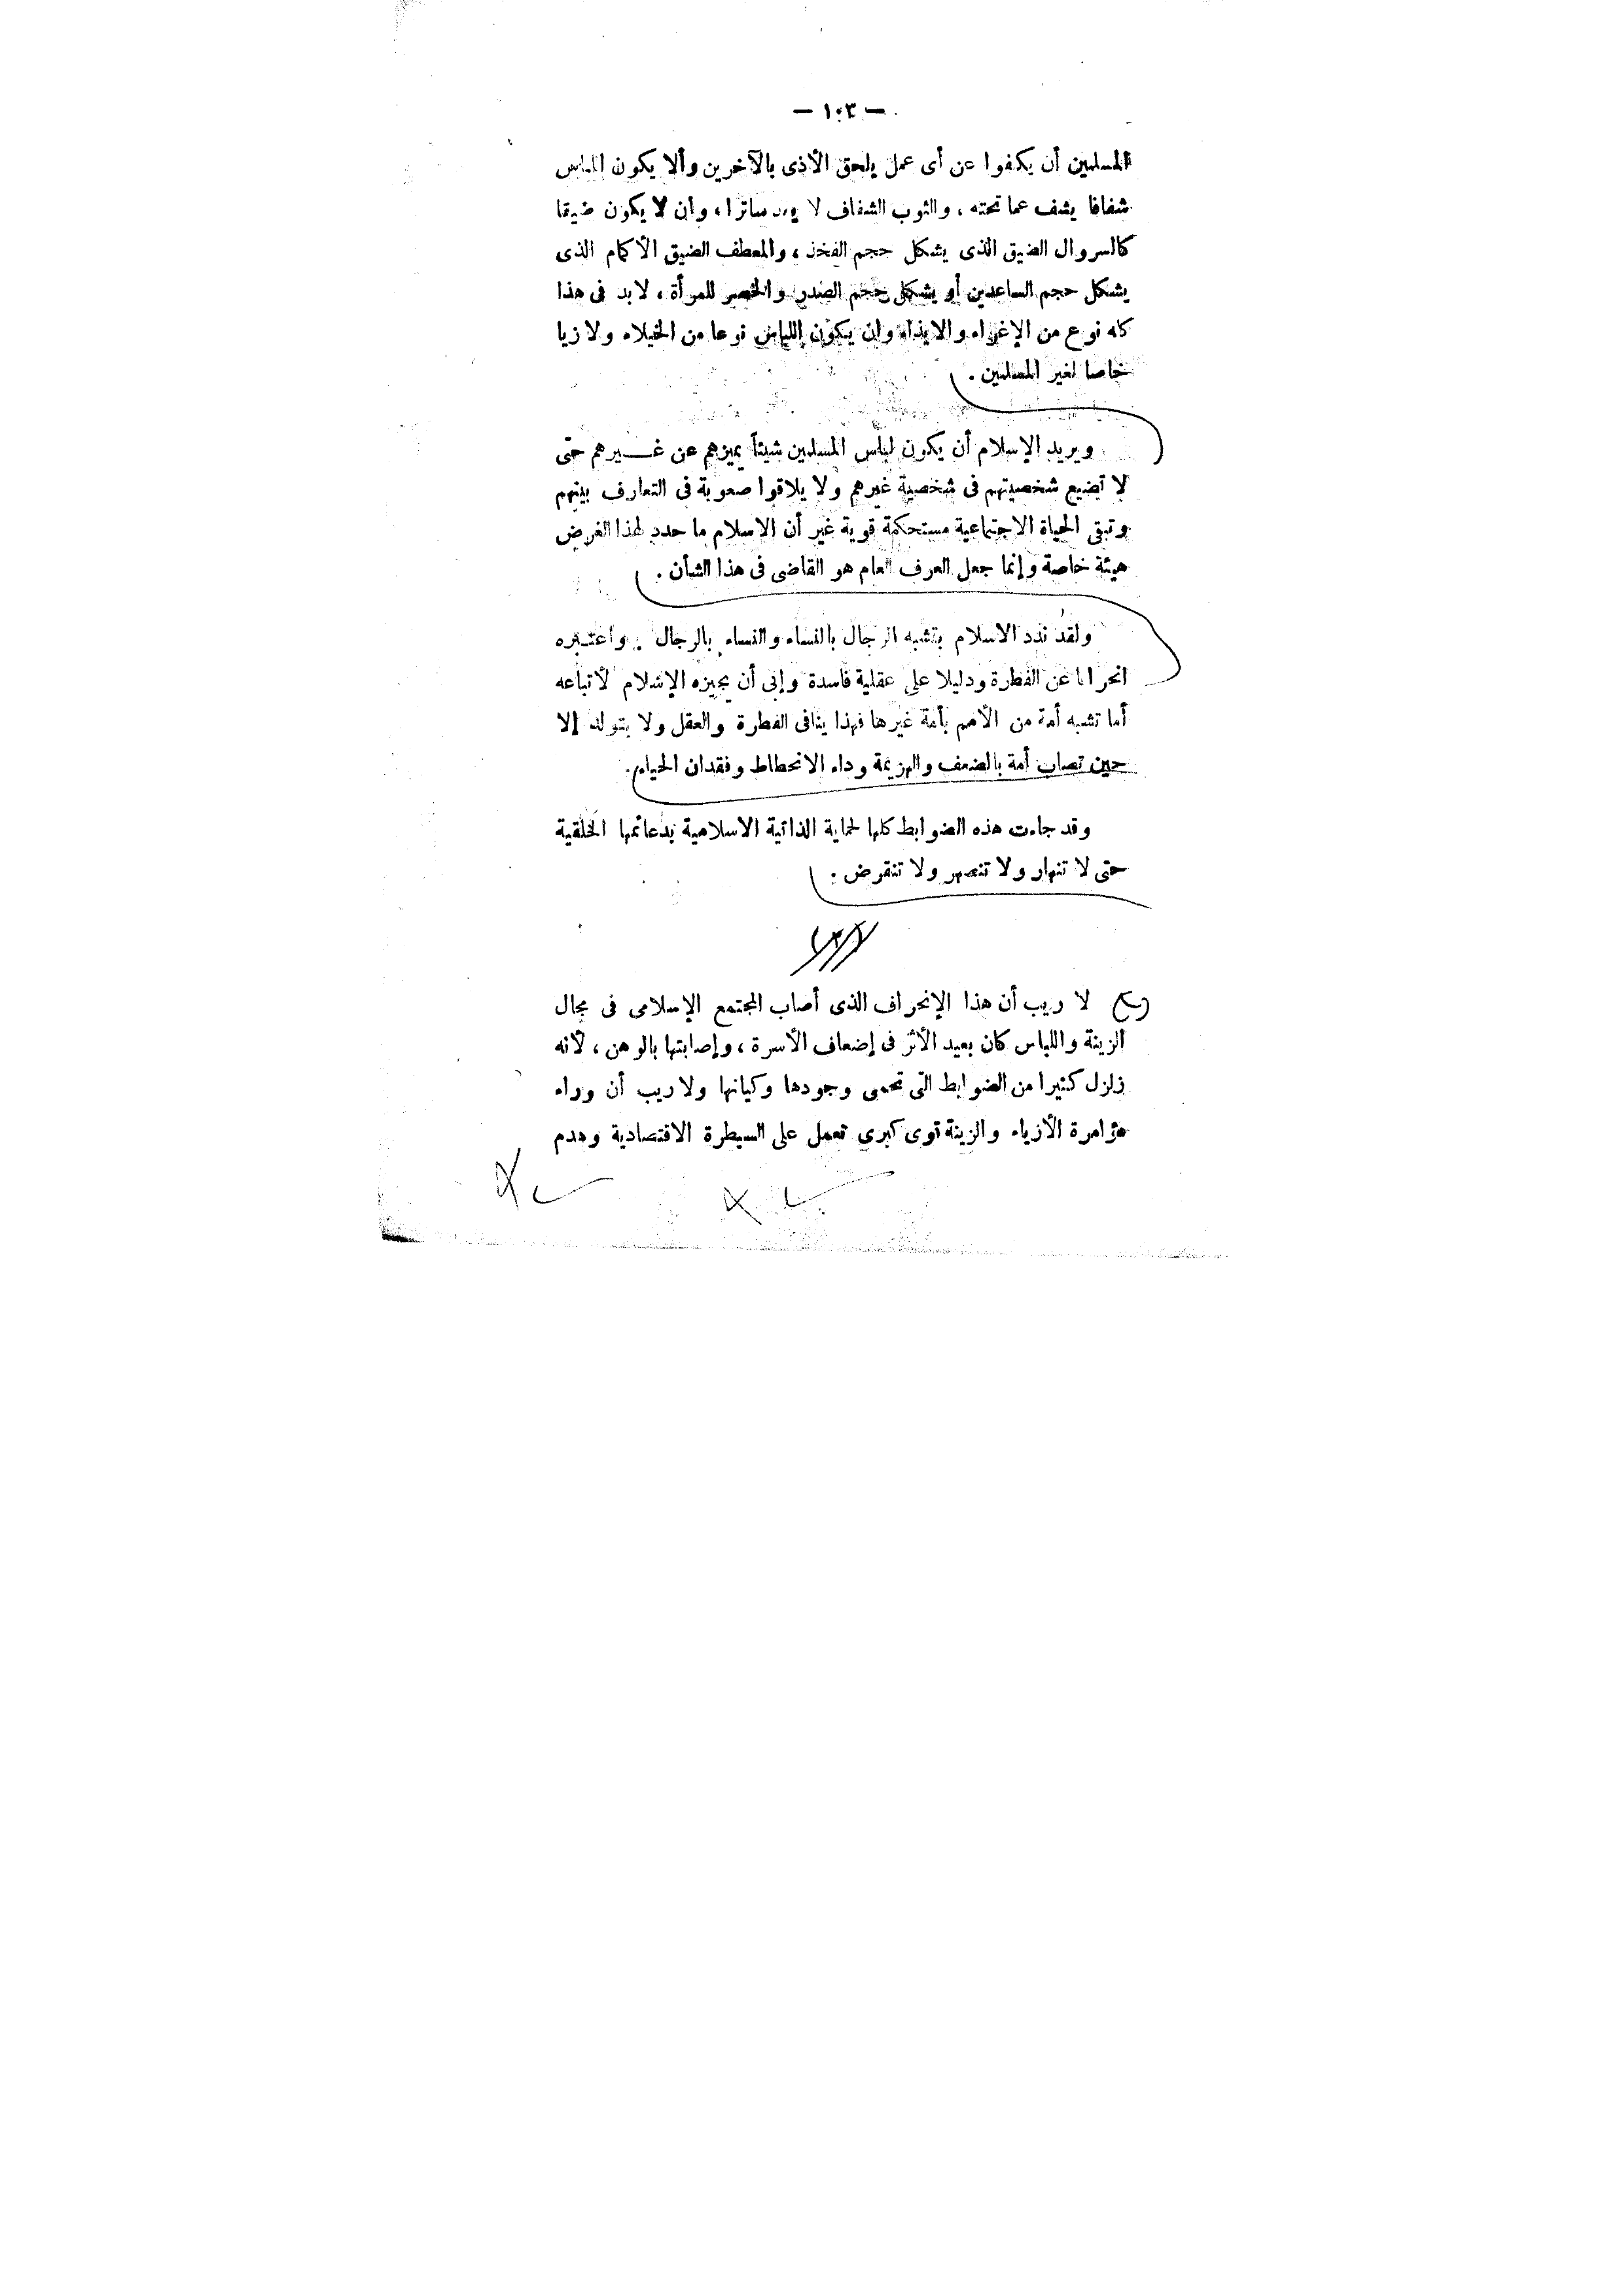 — ١٠٣ —
المسلمين أن يكفوا عن أى عمل يلحق الأذى بالآخرين وألا يكون اللباس
شفافا يشف عما تحته ، والثوب الشفاف لا يعد ساترا ، وأن لا يكون ضيقا
كالسروال الضيق الذى يشكل حجم الفخذ ، والمعطف الضيق الأكمام الذى
يشكل حجم الساعدين أو يشكل حجم الصدر والخصر للمرأة ، لابد فى هذا
كله نوع من الإغراء والايذاء وان يكون اللباس نوعا من الخيلاء ولا زيا
خاصا لغير المسلمين .
ويريد الإسلام أن يكون لباس المسلمين شيئاً يميزهم عن غــيرهم حتى
لا تضيع شخصيتهم فى شخصية غيرهم ولا يلاقوا صعوبة فى التعارف بينهم
وتبقى الحياة الاجتماعية مستحكمة قوية غير أن الاسلام ما حدد لهذا الغرض
هيئة خاصة وإنما جعل العرف العام هو القاضى فى هذا الشأن .
ولقد ندد الاسلام بتشبه الرجال بالنساء والنساء بالرجال . واعتــبره
انحرافا عن الفطرة ودليلا على عقلية فاسدة وإبى أن يجيزه الإسلام لأتباعه
أما تشبه أمة من الأمم بأمة غيرها فهذا ينافى الفطرة والعقل ولا يتولد إلا
حين تصاب أمة بالضعف والهزيمة وداء الانحطاط وفقدان الحياء .
وقد جاءت هذه الضوابط كلها لحماية الذاتية الاسلامية بدعائمها الخلقية
حتى لا تنهار ولا تنصهر ولا تنقرض .
لا ريب أن هذا الإنحراف الذى أصاب المجتمع الإسلامى فى مجال
الزينة واللباس كان بعيد الأثر فى إضعاف الأسرة ، وإصابتها بالوهن ، لأنه
زلزل كثيرا من الضوابط التى تحمى وجودها وكيانها ولا ريب أن وراء
مؤامرة الأزياء والزينة قوى كبرى تعمل على السيطرة الاقتصادية وهدم